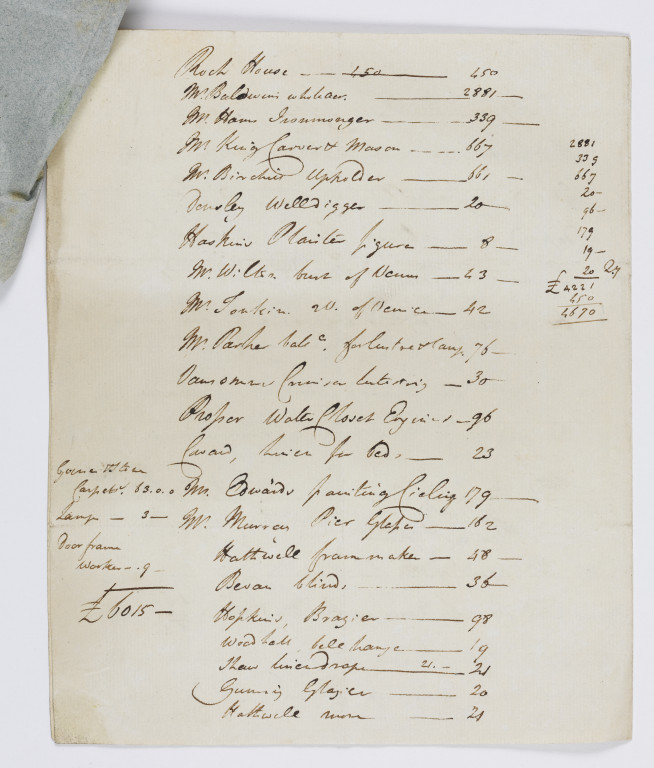 Rock House — 450 — 450
Mr. Baldwin — 2881 —
Mr. Hams Ironmonger — 339 —
Mr. King Carver & Mason — 667
Mr. Birchill Upholder — 661 —
Welldigger — 20 —
Haskins Plaister figure — 8 —
Mr. Wilton bust of Venus — 43 —
Mr. of Venice — 42
Mr. Parker balc. for lustre & lamp 76 —
— 30
Prosser Water Closet Engines — 96
linen for beds — 23
Mr. Edwards painting Cieling 179 —
Mr. Murray Pier Glasses — 162
Hathwell frammaker — 48 —
Bevan blinds — 36
Hopkins, Brazier — 98
Woodhall bell hanger — 19
Shaw linendraper — 21. — 21
Glazier — 20
Hathwell more — 21
2881
339
667
20 —
96 —
179
19 —
20
£ 4221
450
4670
Carpets. 63.0.0
Lamp — 3 —
Door frame
Worker — 9
£6015 —